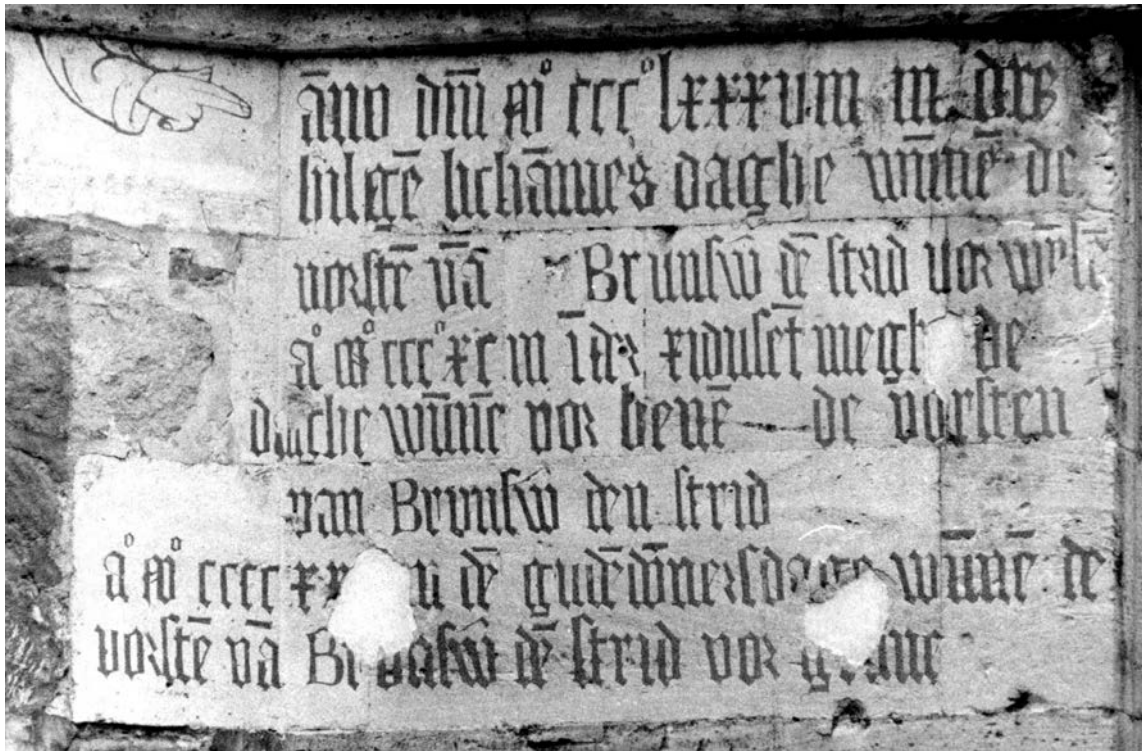 āno dm̄ mͦ cccͦ lxxxvııı ın des
hilgē lichāmes daghe wūnē de
vorstē vā Brunsw̄ dē strid vor
aͦ mͦ cccͦ xc ııı ī der xıdusēt meghede
daghe wūnē vor beuē de vorsten
van Brunsw̄ den strid
aͦ mͦ cccc dē gudēdōnersdaghe wūnē de
vorstē vā Brunsw̄ dē strid vor